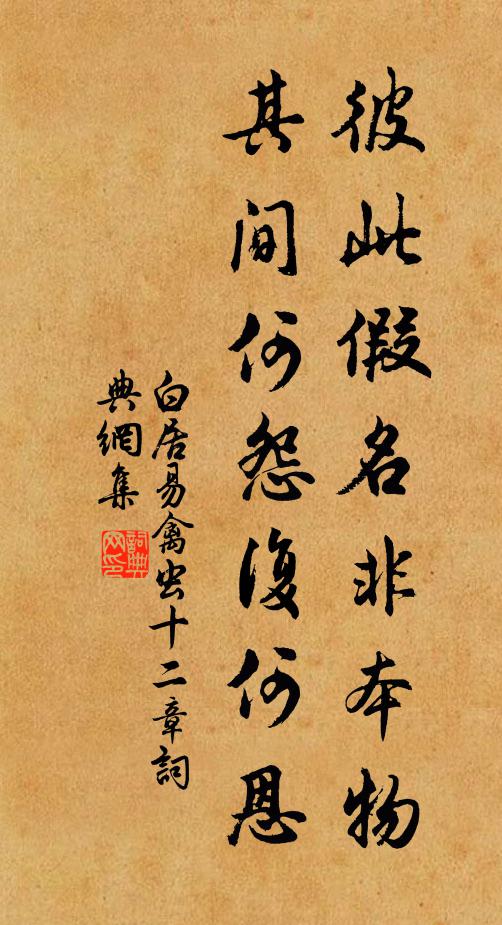 彼此假名非本物
其間何怨復何恩
白居易禽虫十二章詞
典網集
詞典
网印